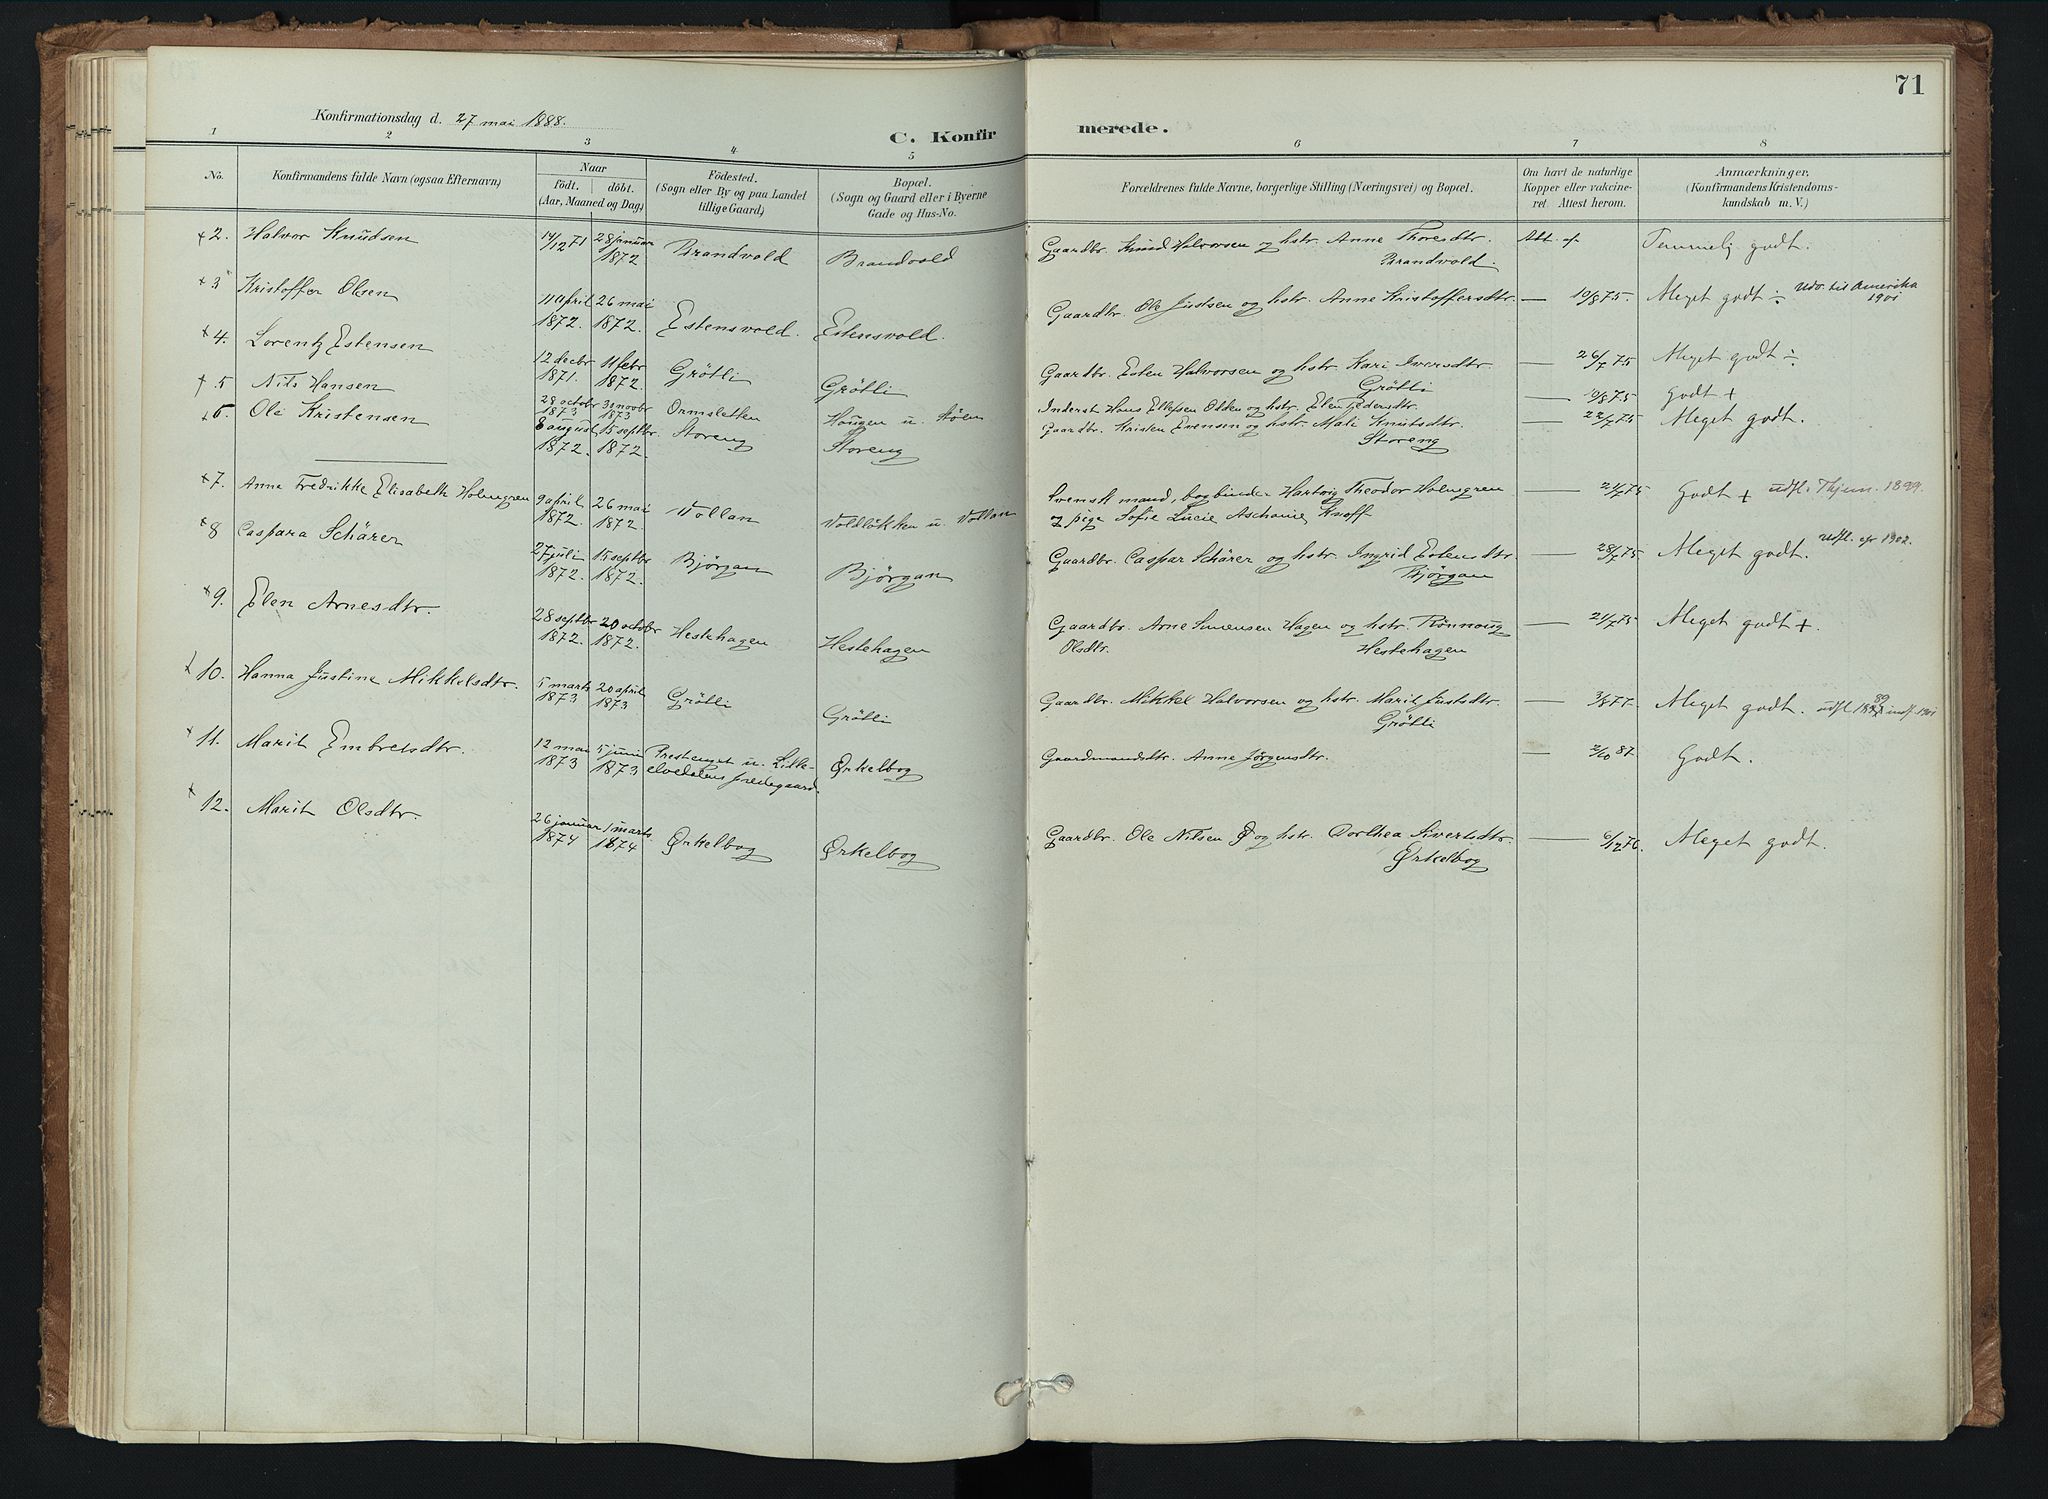 71
Konfirmationsdag d. 27 mai 1888.
C. Konfirmerede.
1 2 3 4 5 6 7 8
No.
Konfirmandens fulde Navn (ogsaa Efternavn)
Naar
födt. döbt.
(Aar, Maaned og Dag)
Födested.
(Sogn eller By og paa Landet
tillige Gaard)
Bopæl.
(Sogn og Gaard eller i Byerne
Gade og Hus-No.
Forældrenes fulde Navne, borgerlige Stilling (Næringsvei) og Bopæl.
Om havt de naturlige
Kopper eller vakcine-
ret. Attest herom.
Anmærkninger.
(Konfirmandens Kristendoms-
kundskab m. V.)
+2. Halvor Knudsen 14/12 71 28 januar 1872 Brandvold Brandvold Gaardbr. Knud Halvorsen og hstr. Anne Thoresdtr. Att. af Temmelig godt.
Brandvold.
+3 Kristoffer Olsen 11 april 1872. 26 mai 1872. Estensvold. Estensvold. Gaardbr. Ole Justsen og hstr. Anne Kristoffersdtr. — 10/8 75. Meget godt ÷ Udv. til Amerika
1901
+4. Lorentz Estensen 12 decbr 1871. 11 febr 1872. Grötli Grötli Gaardbr. Esten Halvorsen og hstr. Kari Iversdtr. — 26/7 75 Meget godt ÷
Grötli
+5 Nils Hansen 28 octobr 1873 30 novbr 1873 Ormsletten Haugen u. Stöen Inderst Hans Ellefsen Olden og hstr. Elen Pedersdtr. — 10/8 75 Godt +
+6. Ole Kristensen 8 august 1872. 15 septbr. 1872. Storeng Storeng Gaardbr. Kristen Evensen og hstr. Mali Knutsdtr. — 22/7 75 Meget godt.
Storeng
+7. Anna Fredrikke Elisabeth Holmgren 9 april 1872. 26 mai 1872 Vollan Voldlökken u. Vollan Svensk mand, bogbinder Hartvig Theodor Holmgren — 21/7 75 Godt + udfl. Thjem. 1899.
og pige Sofie Lucie Aschanie Knoff
+8 Caspara Schärer 27 juli 1872. 15 septbr 1872. Bjørgan Bjørgan Gaardbr. Caspar Schärer og hstr. Ingrid Estensdtr. — 28/7 75 Meget godt. Udfl. apr 1902.
Bjørgan
+9. Elen Arnesdtr. 28 septbr 1872. 20 octobr 1872. Hestehagen Hestehagen Gaardbr. Arne Simensen Hagen og hstr. Rönnoug — 21/7 75 Meget godt +.
Olsdtr. Hestehagen
+10. Hanna Justine Mikkelsdtr. 5 marts 1873 20 april 1873 Grötli Grötli Gaardbr. Mikkel Halvorsen og hstr. Marit Justsdtr. — 3/8 77. Meget godt. udfl 1889 indf. 1901
Grötli
+11. Marit Embretsdtr. 12 mai 1873 5 juni 1873 Prestenget u. Lille-
elvedalens prestegaard. Ørkelbog Gaardmandsdtr. Anne Jörgensdtr. — 2/10 87. Godt.
+12. Marit Olsdtr. 26 januar 1874 1 marts 1874 Ørkelbog Ørkelbog Gaardbr. Ole Nilsen Ø og hstr. Dorthea Sivertsdtr. — 6/12 76. Meget godt.
Ørkelbog